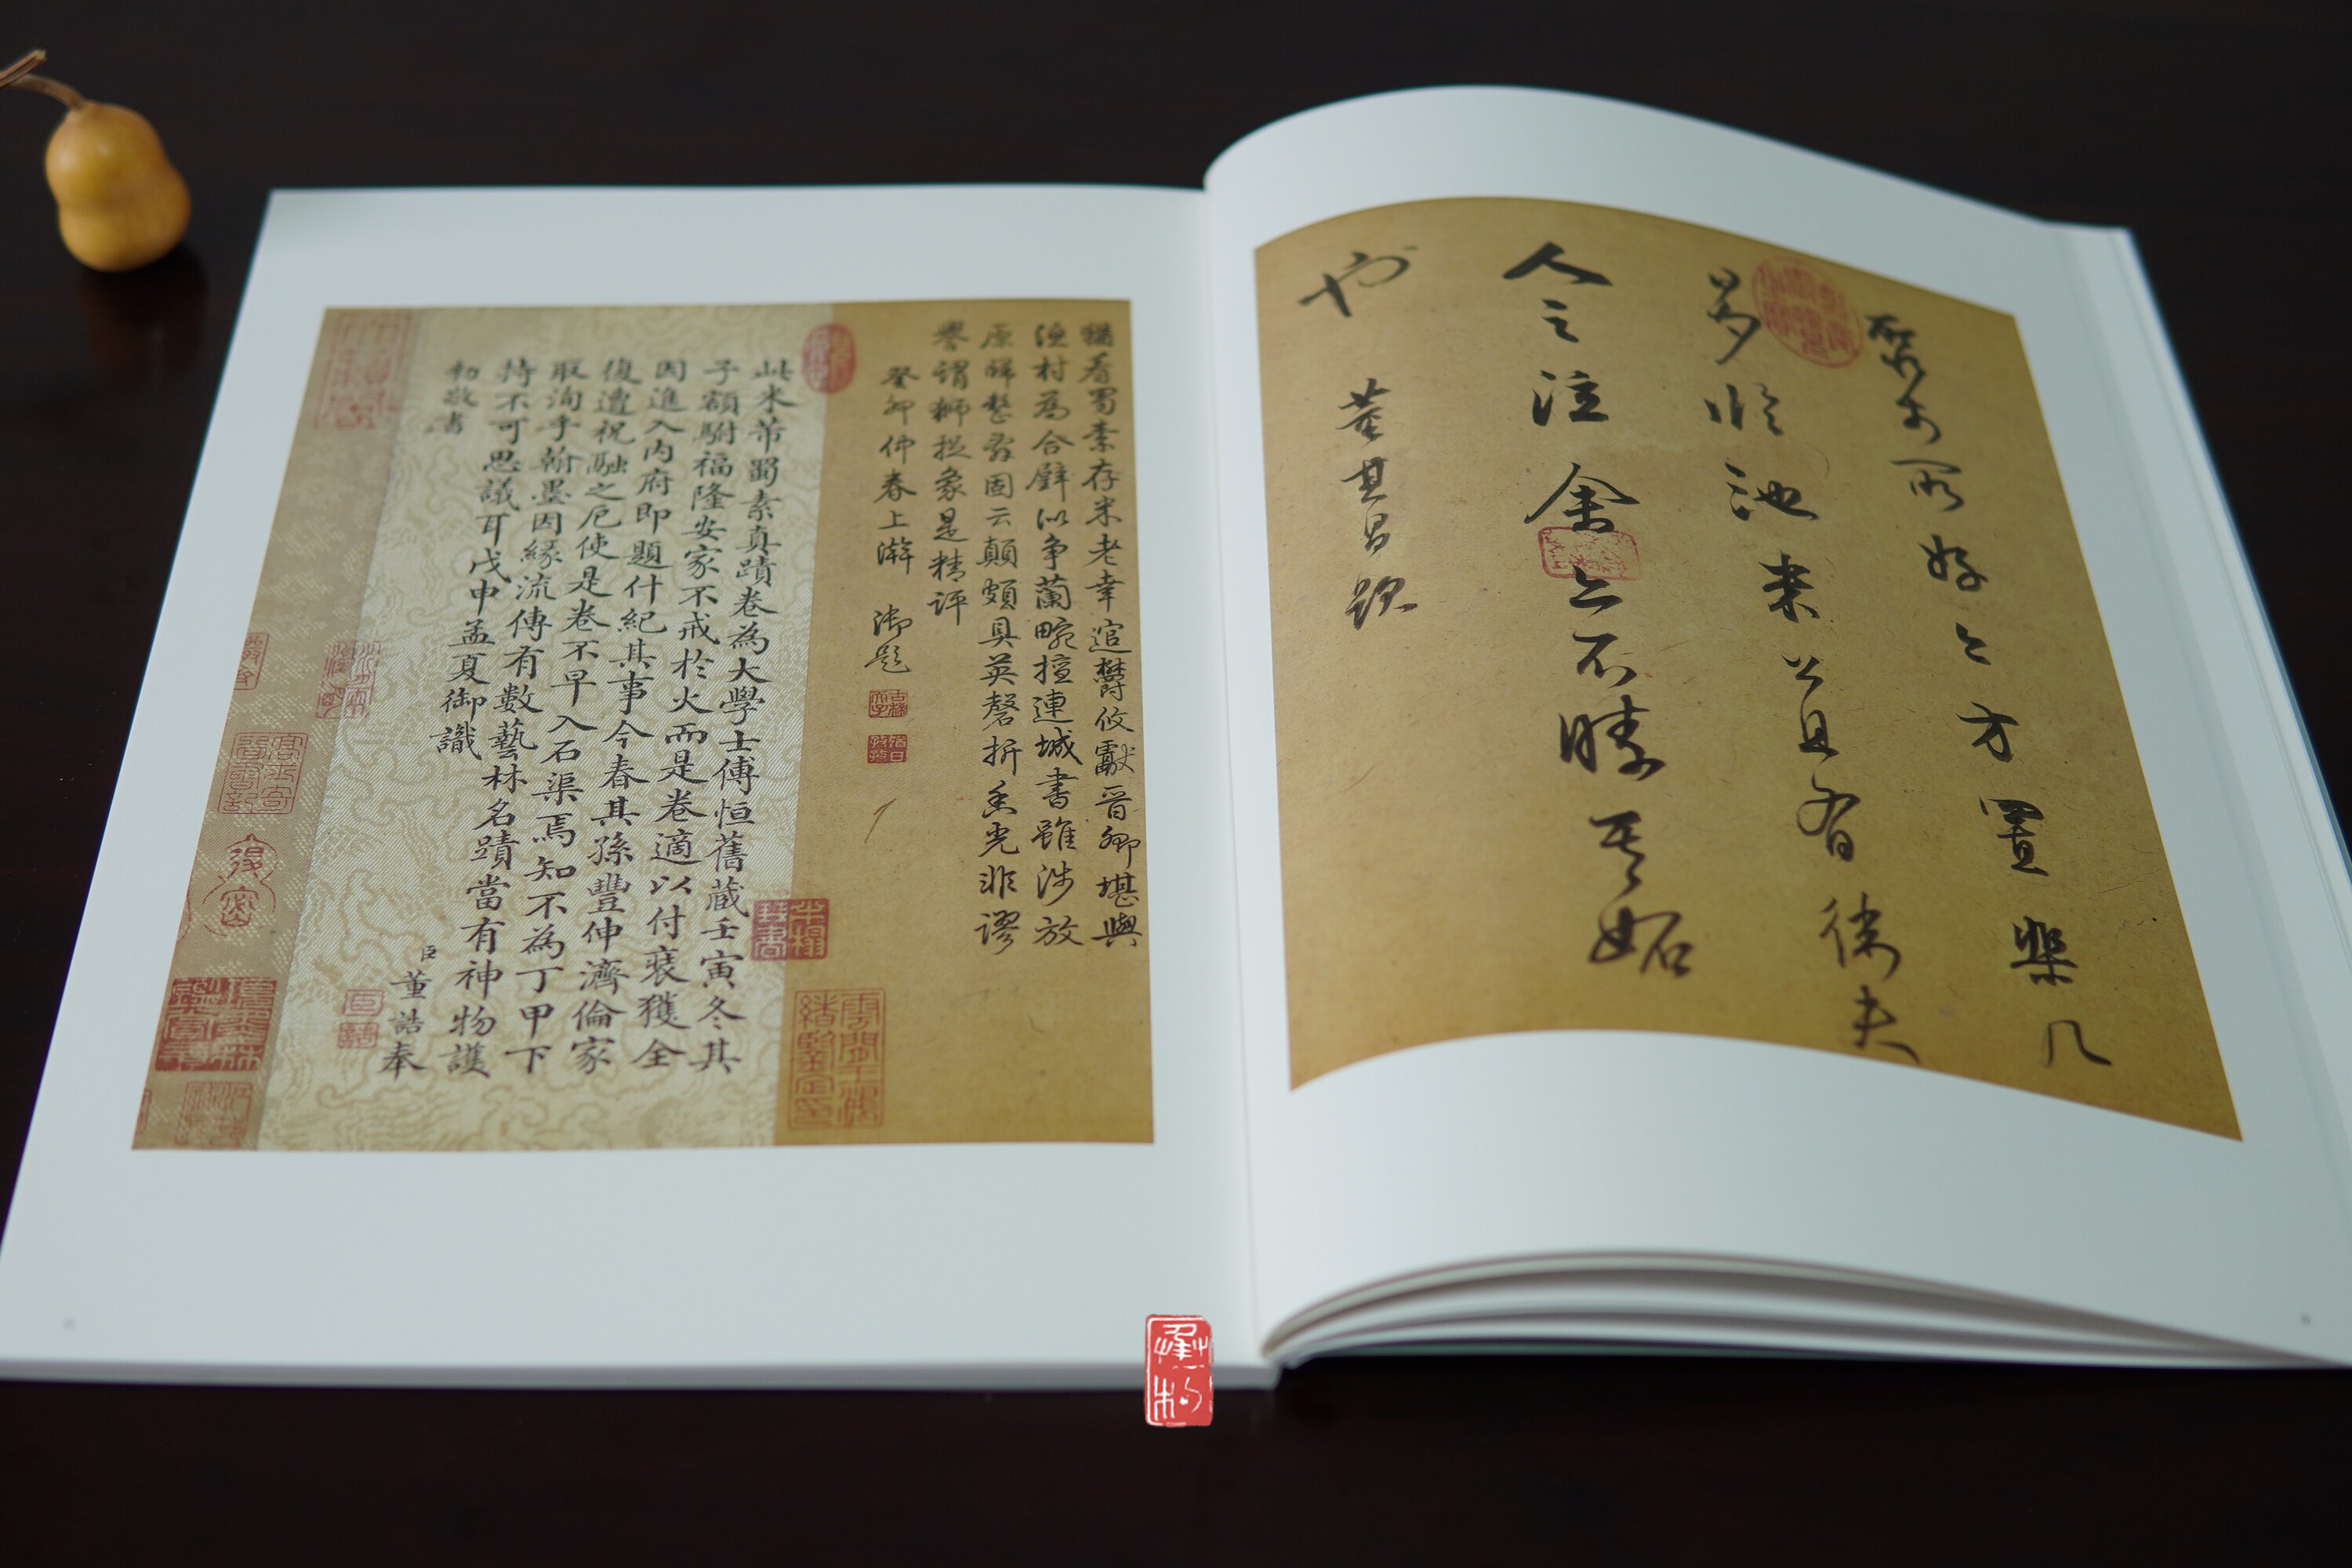 聚於所好 方置棐几
臨池米公且有 夫
人之 余亦不勝其妬
也 董其昌題
猶看蜀素存米老幸逭欝攸獻晉卿堪與
漁村為合璧以爭蘭畹擅連城書雖涉放
原歸整 固云顛頗具英磬折香光非謬
譽謂獅捉象是精評
癸卯仲春上澣 御題
此米芾蜀素真蹟卷為大學士傅恒舊藏壬寅冬其
子額駙福隆安家不戒於火而是卷適以付裝獲全
因進入內府即題什紀其事今春其孫豐伸濟倫家
復遭祝融之厄使是卷不早入石渠焉知不為丁甲下
取洵乎翰墨因緣流傳有數藝林名蹟當有神物護
持不可思議耳戊申孟夏御識
臣董誥奉
勅敬書
半榻琴書
雲間王鴻緒鑒定印